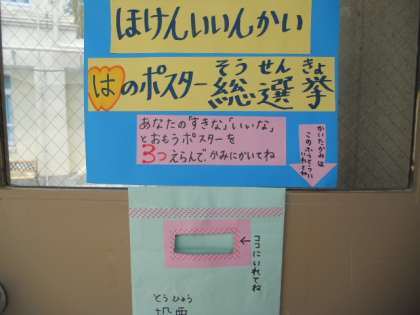 ほけんいいんかい
はのポスター総選挙
そうせんきょ
あなたの「すきな」「いいな」
とおもうポスターを
3つえらんで、かみにかいてね
かいたかみは
このふうとうに
いれてね
←ココにいれてね
とうひょう
投票